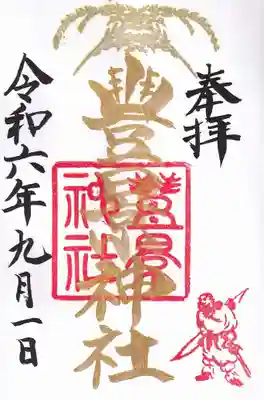 奉拝
豊景神社
豊景神社
令和六年九月一日